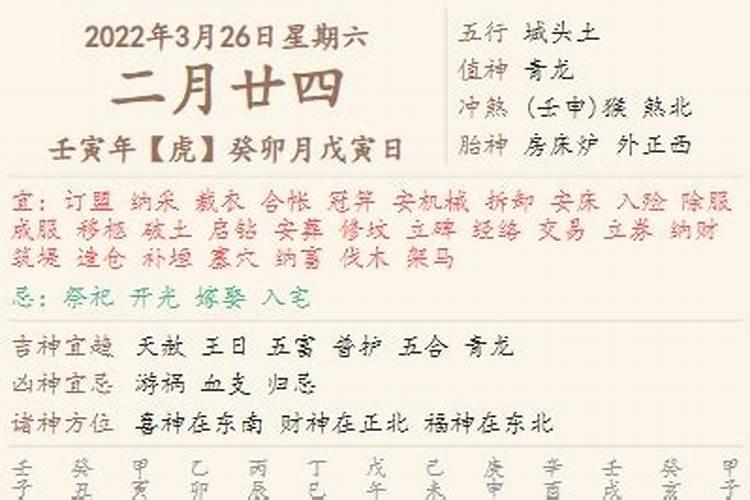 2022年3月26日星期六
二月廿四
壬寅年【虎】癸卯月戊寅日
五行 城头土
值神 青龙
冲煞 (壬申)猴 煞北
胎神 房床炉 外正西
宜: 订盟 纳采 裁衣 合帐 冠笄 安机械 拆卸 安床 入殓 除服
成服 移柩 破土 启钻 安葬 修坟 立碑 经络 交易 立券 纳财
筑堤 造仓 补垣 塞穴 纳畜 伐木 架马
忌: 祭祀 开光 嫁娶 入宅
吉神宜趋 天赦 王日 五富 普护 五合 青龙
凶神宜忌 游祸 血支 归忌
诸神方位 喜神在东南 财神在正北 福神在东北
壬 癸 甲 乙 丙 丁 戊 己 庚 辛 壬 癸 甲
子 丑 寅 卯 辰 巳 午 未 申 酉 戌 亥 子